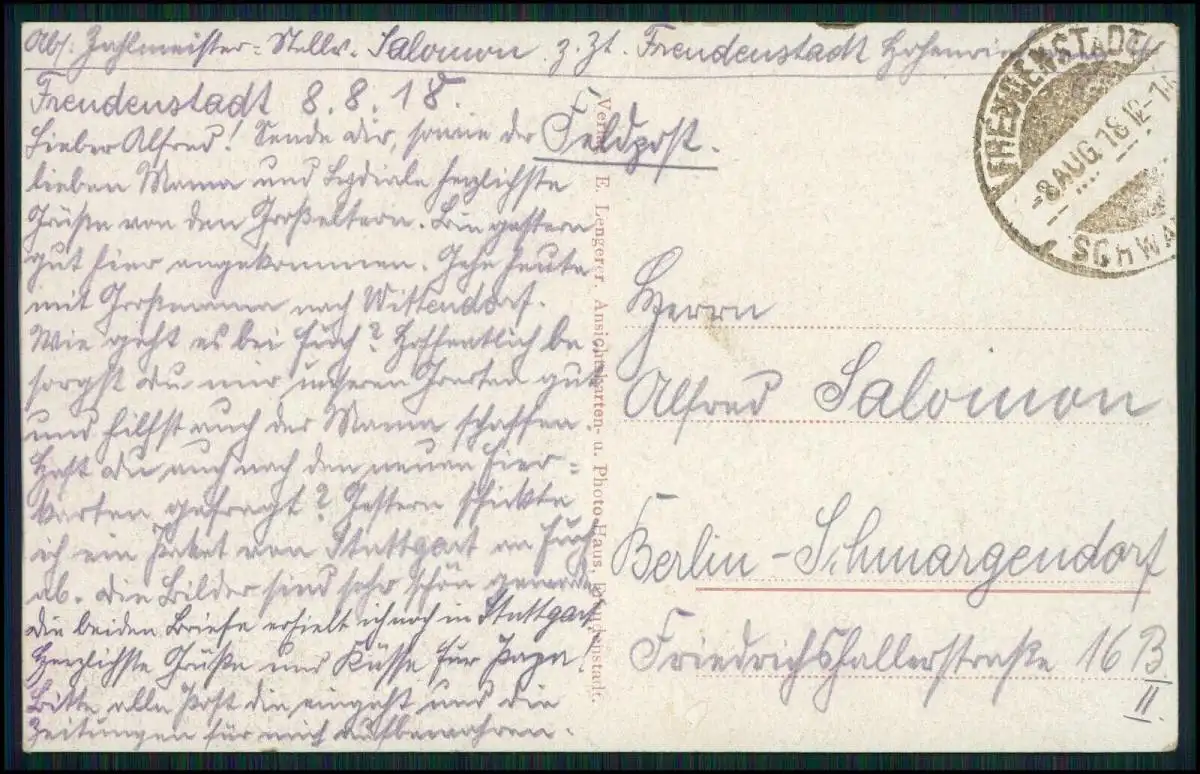 Abs: Zahlmeister-Stellv. Salomon z. Zt. Freudenstadt
Freudenstadt 8.8.18.
Lieber Alfred! Sende dir, sowie der
lieben Mama und herzlichste
Grüße von den Großeltern. Bin gestern
gut hier angekommen. Gehe heute
mit Grossmama nach Wittendorf.
Wie geht es bei Euch? Hoffentlich be
sorgst Du mir unseren Garten gut
und hilfst auch der Mama schaffen.
Hast Du auch nach den neuen Eier-
karten gefragt? Gestern schickte
ich ein Paket von Stuttgart an Euch
ab. Die Bilder sind sehr schön geworden
Die beiden Briefe erhielt ich noch in Stuttgart
Herzlichste Grüße und Küsse Euer Papa!
Bitte alle Post die eingeht und die
Zeitungen für mich aufbewahren.
Feldpost.
Herrn
Alfred Salomon
Berlin-Schmargendorf
Friedrichshallerstraße 16 B
II
FREUDENSTADT
-8 AUG. 18 12-1
SCHWA
Verlag E. Lengerer. Ansichtskarten- u. Photo-Haus, Freudenstadt.